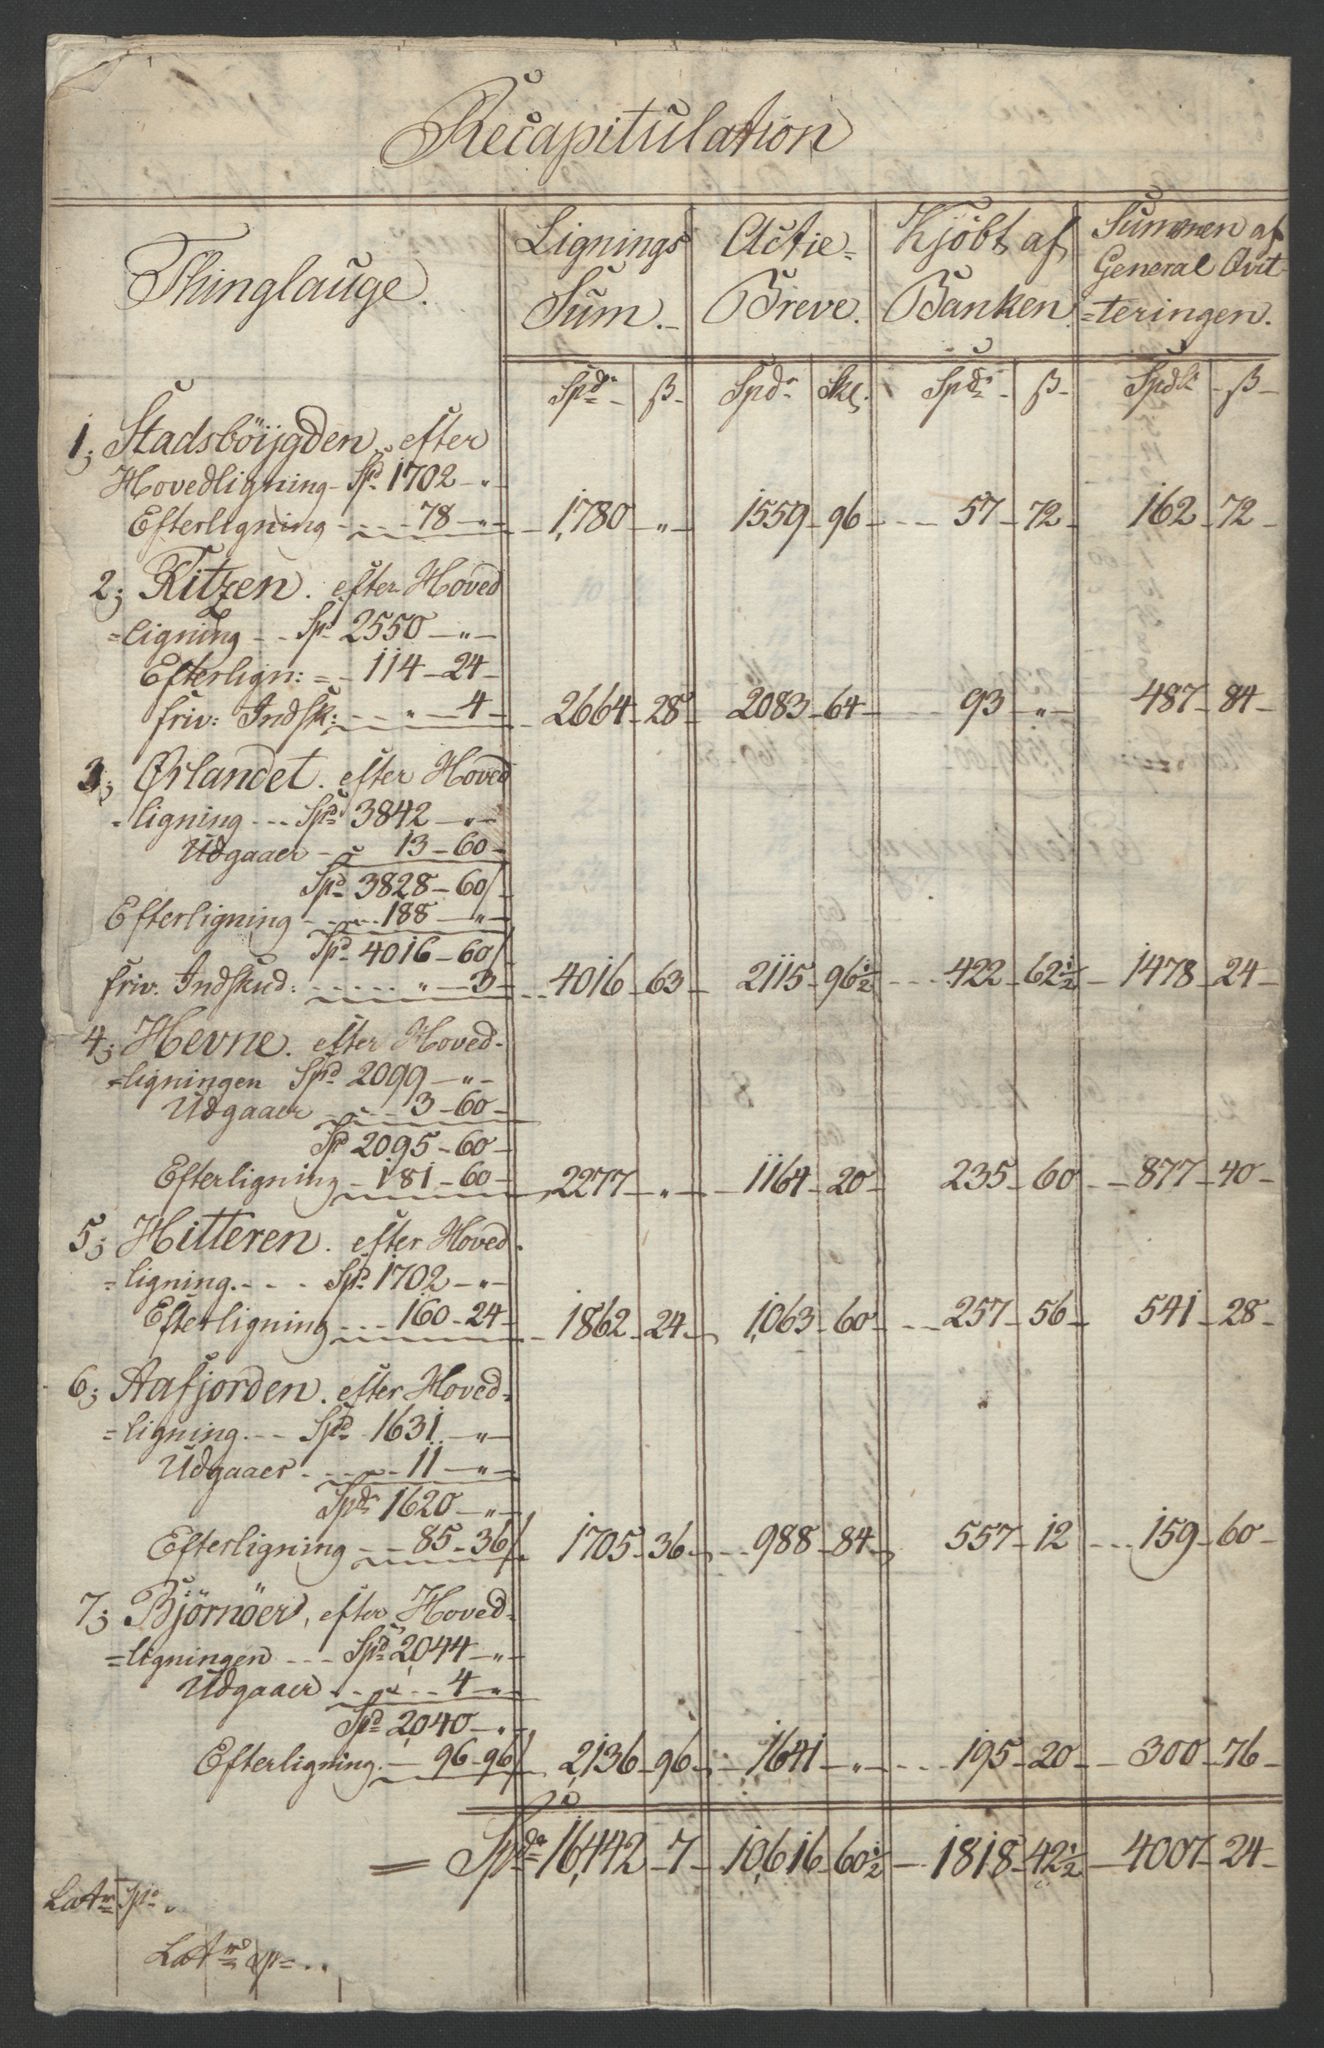 Recapitulation
Thinglauge. Lignings Sum. Actie-Breve. Kjöbt af Banken Summen af General Qvit=teringen.
Spd. ß Spd. Sk. Spd. ß Spd. ß
1; Stadsböijgden, efter
Hovedligning - Spd 1702 - "
Efterligning - - - 78 - " - 1,780 - " - 1559 - 96 - - 57 - 72 - 162 - 72 -
2; Ritzen. efter Hoved
=ligning - - Spd 2550 - " -
Efterlign: = - 114 - 24 -
friv: Indsk: - - - " - 4 - 2664 - 28 - 2083 - 64 - - 93 - " - 487 - 84 -
3; Ørlandet. efter Hoved
=ligning - - - Spd 3842 - " -
Udgaaer - - 13 - 60 -
Spd 3828 - 60
Efterligning - - - 188 - " -
Spd 4016 - 60
friv. Indskud: - - - " - 3 - - 4016 - 63 - 2115 - 96½ - - 422 - 62½ - 1478 - 24 -
4; Hevne. efter Hoved-
=ligningen Spd 2099 - " -
Udgaaer - - 3 - 60 -
Spd 2095 - 60 -
Efterligning - 181 - 60 - 2277 - " - 1164 - 20 - 235 - 60 - - 877 - 40 -
5; Hitteren. efter Hoved-
=ligning. - - - Spd 1702 - " -
Efterligning - - - 160 - 24 - 1862 - 24 - 1,063 - 60 - - 257 - 56 - 541 - 28 -
6; Aafjorden. efter Hoved-
=ligning. - - Spd 1631 - " -
Udgaaer - - - 11 - " -
Spd 1620 - " -
Efterligning - - 85 - 36 1705 - 36 - - 988 - 84 - 557 - 12 - - 159 - 60 -
7; Björnöer, efter Hoved-
=ligningen - - - Spd 2,044 - " -
Udgaaer - - - 4 - " -
Spd 2,040 - " -
Efterligning. - 96 - 96 2,136 - 96 - - 1641 - " - - 195 - 20 - - 300 - 76 -
= Spd 16,442 - 7 - 10,616 - 60½ - 1818 - 42½ - 4007 - 24 -
Latr Spd
Latr Sp